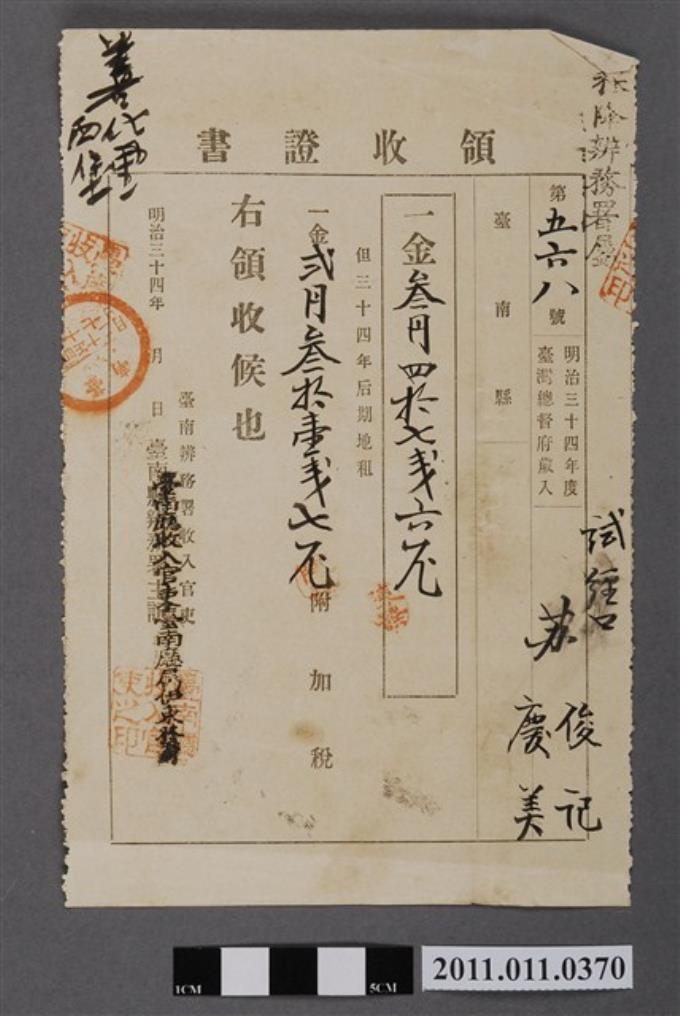 領收證書
辨務署
第五六八號
明治三十四年度
臺灣總督府歲入
臺南縣
試經口
蘇俊記
慶美
一金叁円四拾七戔六厘
但三十四年后期地租
一金弍円叁拾壹戔七厘附加税
右領收候也
明治三十四年 月 日
臺南辨務署收入官吏
善化
西堡
1CM
5CM
2011.011.0370